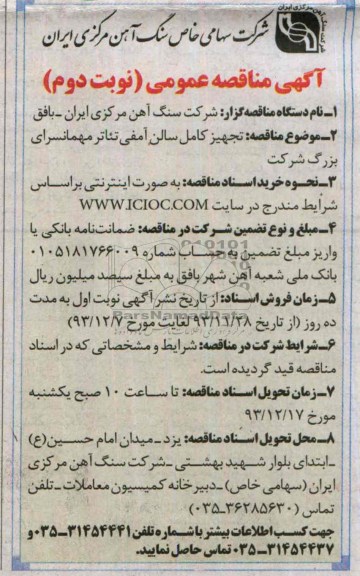 شرکت سهامی خاص سنگ آهن مرکزی ایران
آگهی مناقصه عمومی (نوبت دوم)
۱ـ نام دستگاه مناقصه‌گزار: شرکت سنگ آهن مرکزی ایران ـ بافق
۲ـ موضوع مناقصه: تجهیز کامل سالن آمفی تئاتر مهمانسرای
بزرگ شرکت
۳ـ نحوه خرید اسناد مناقصه: به صورت اینترنتی براساس
شرایط مندرج در سایت WWW.ICIOC.COM
۴ـ مبلغ و نوع تضمین شرکت در مناقصه: ضمانت‌نامه بانکی یا
واریز مبلغ تضمین به حساب شماره ۰۱۰۵۱۸۱۷۶۶۰۰۹
بانک ملی شعبه آهن شهر بافق به مبلغ سیصد میلیون ریال
۵ـ زمان فروش اسناد: از تاریخ نشر آگهی نوبت اول به مدت
ده روز (از تاریخ ۹۳/۱۱/۲۸ لغایت مورخ ۹۳/۱۲/۷)
۶ـ شرایط شرکت در مناقصه: شرایط و مشخصاتی که در اسناد
مناقصه قید گردیده است.
۷ـ زمان تحویل اسناد مناقصه: تا ساعت ۱۰ صبح یکشنبه
مورخ ۹۳/۱۲/۱۷
۸ـ محل تحویل اسناد مناقصه: یزد ـ میدان امام حسین(ع)
ـ ابتدای بلوار شهید بهشتی ـ شرکت سنگ آهن مرکزی
ایران (سهامی خاص) ـ دبیرخانه کمیسیون معاملات ـ تلفن
تماس (۳۶۲۸۵۶۳۰ـ۰۳۵)
جهت کسب اطلاعات بیشتر با شماره تلفن ۳۱۴۵۴۴۴۱ـ۰۳۵ و
۳۱۴۵۴۴۳۷ـ۰۳۵ تماس حاصل نمایید.